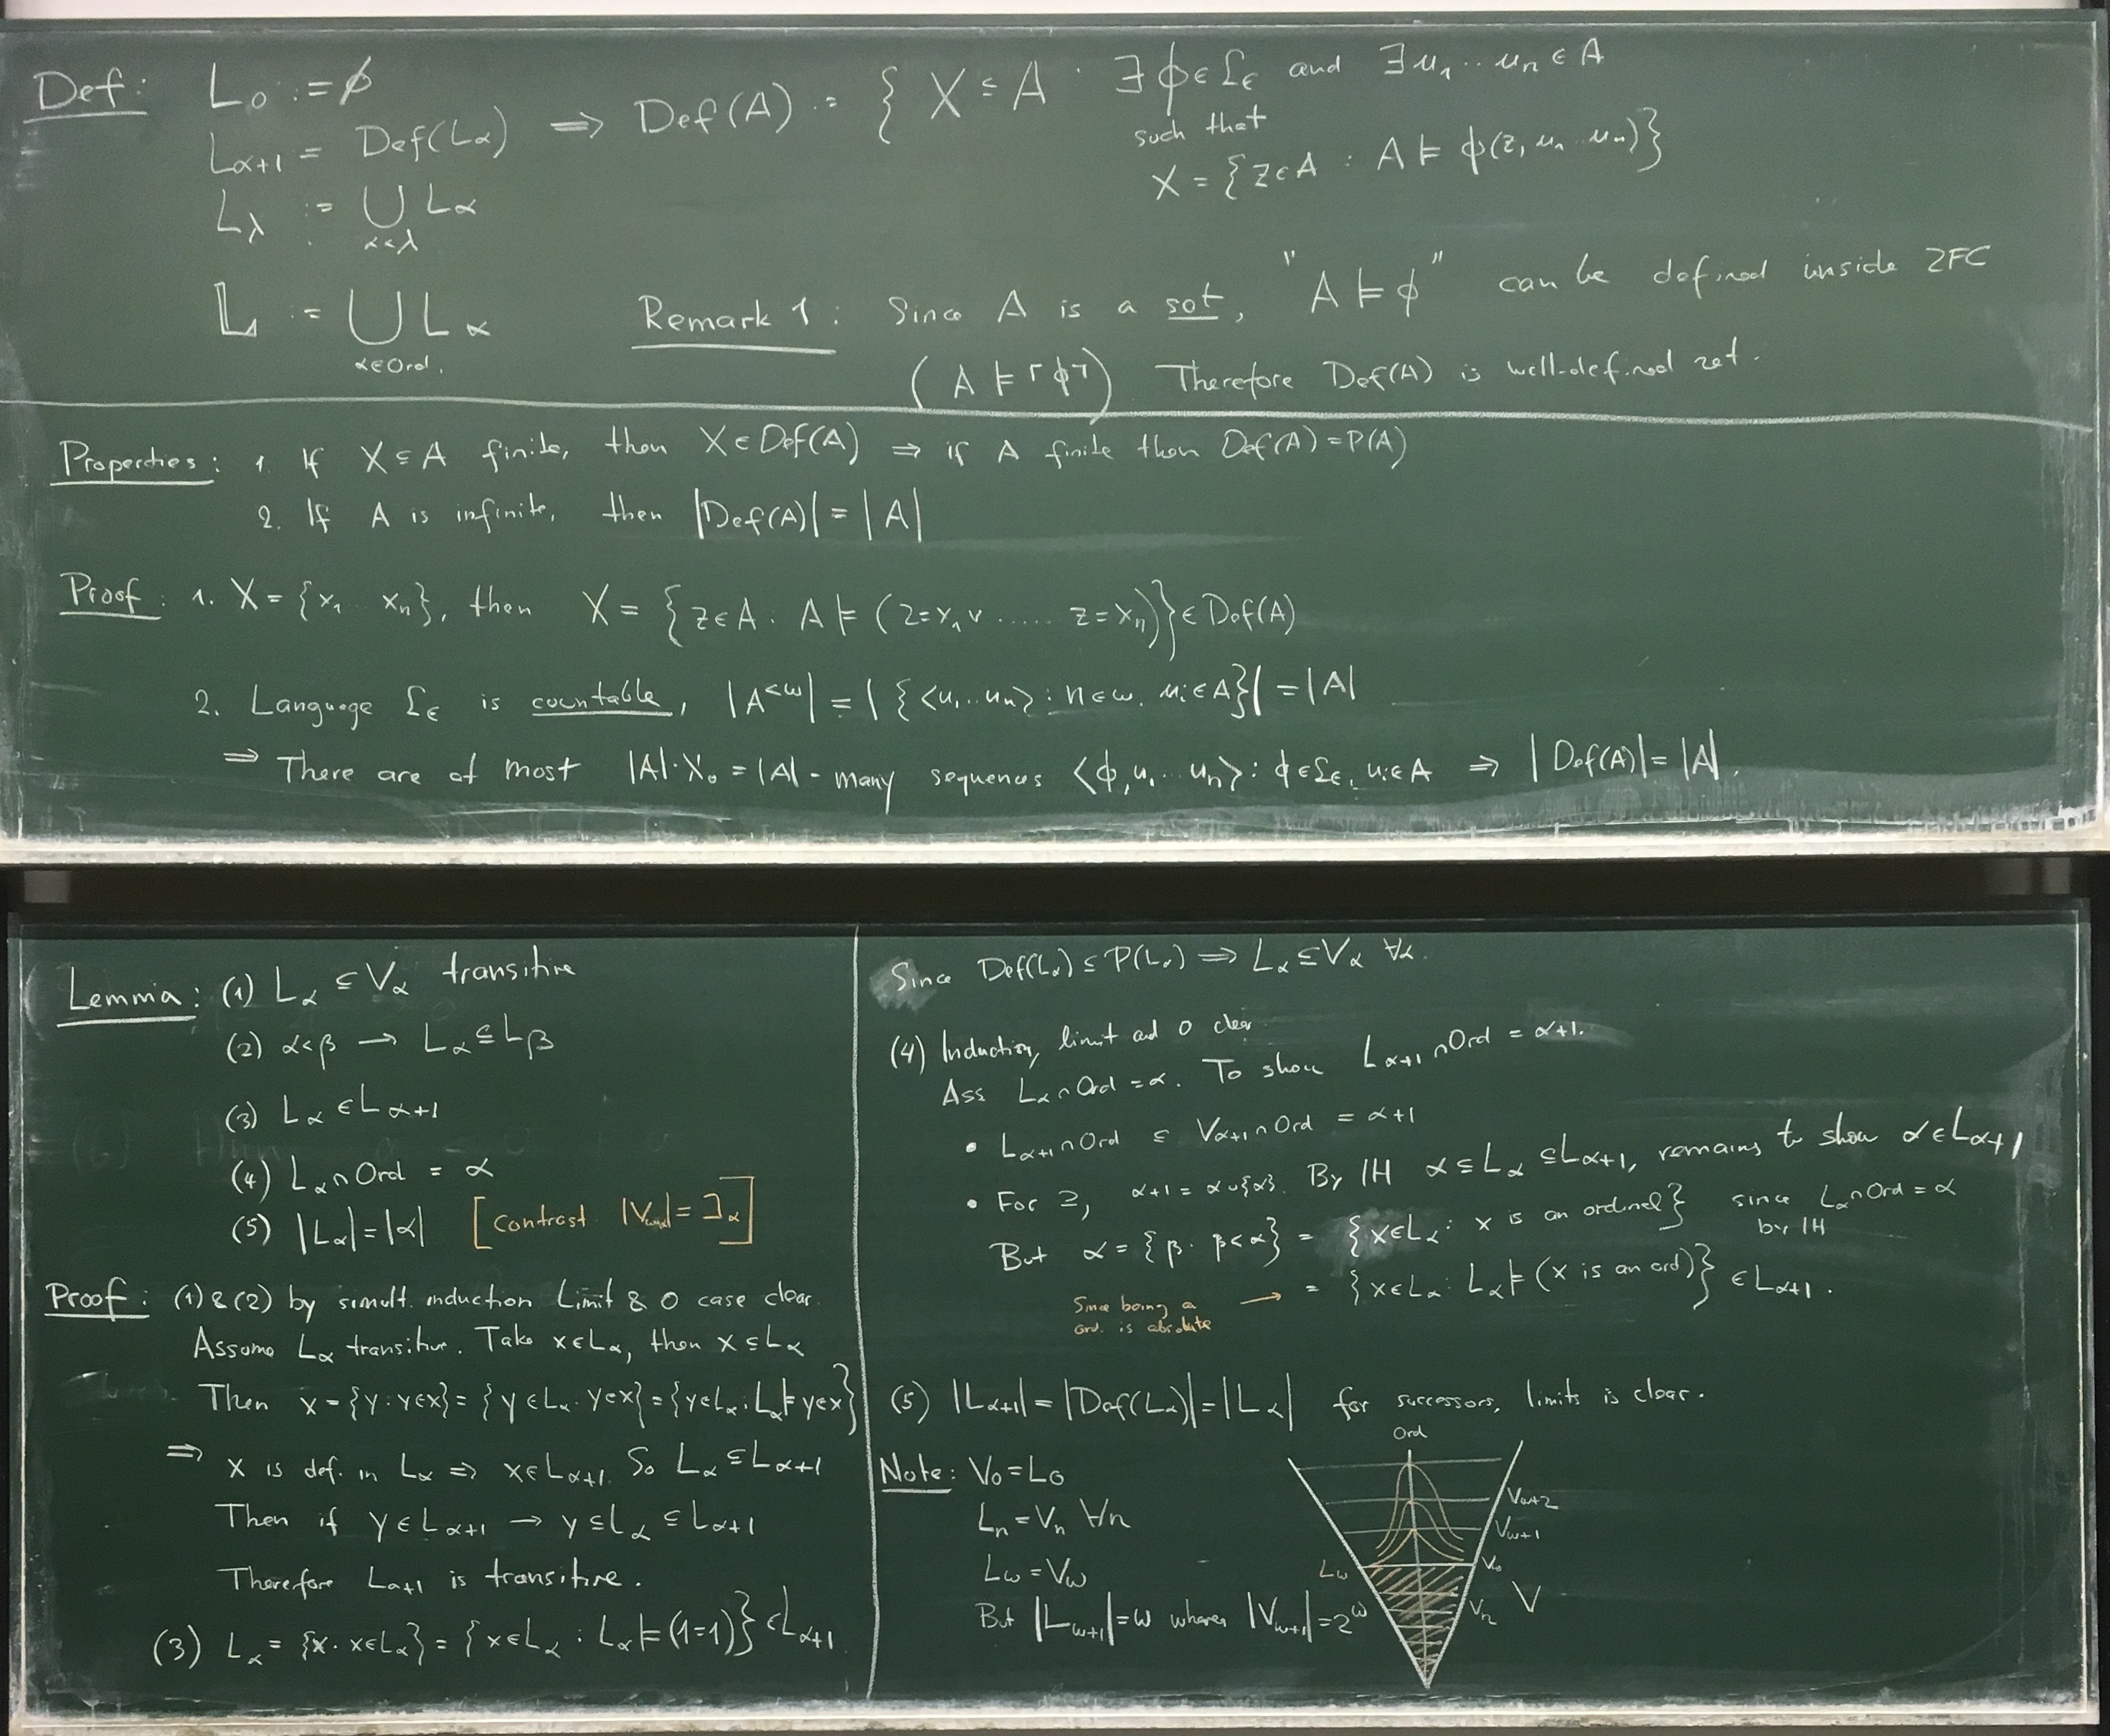 Def: L₀ := ϕ
L_{α+1} = Def(L_α) ⇒ Def(A) := { X ⊆ A : ∃ϕ ∈ 𝓛_∈ and ∃u₁ .. u_n ∈ A
such that
X = {z ∈ A : A ⊨ ϕ(z, u₁ ... u_n)}}
L_λ := ⋃_{α<λ} L_α
𝕃 := ⋃_{α∈Ord.} L_α
Remark 1: Since A is a set, "A ⊨ ϕ" can be defined inside ZFC
(A ⊨ ⌜ϕ⌝) Therefore Def(A) is well-defined set.
Properties: 1. If X ⊆ A finite, then X ∈ Def(A) ⇒ if A finite then Def(A) = P(A)
2. If A is infinite, then |Def(A)| = |A|
Proof: 1. X = {x₁ .. x_n}, then X = {z ∈ A : A ⊨ (z = x₁ ∨ ..... z = x_n)} ∈ Def(A)
2. Language 𝓛_∈ is countable, |A^{<ω}| = |{<u₁...u_n> : n ∈ ω, u_i ∈ A}| = |A|
⇒ There are at most |A|·ℵ₀ = |A| - many sequences <ϕ, u₁ ... u_n> : ϕ ∈ 𝓛_∈, u_i ∈ A ⇒ |Def(A)| = |A|.
Lemma: (1) L_α ⊆ V_α transitive
(2) α < β → L_α ⊆ L_β
(3) L_α ∈ L_{α+1}
(4) L_α ∩ Ord = α
(5) |L_α| = |α| [contrast |V_{ω+α}| = ℶ_α]
Proof: (1) & (2) by simult. induction Limit & 0 case clear.
Assume L_α transitive. Take x ∈ L_α, then x ⊆ L_α
Then x = {y : y ∈ x} = {y ∈ L_α : y ∈ x} = {y ∈ L_α : L_α ⊨ y ∈ x}
⇒ x is def. in L_α ⇒ x ∈ L_{α+1}. So L_α ⊆ L_{α+1}
Then if y ∈ L_{α+1} → y ⊆ L_α ⊆ L_{α+1}
Therefore L_{α+1} is transitive.
(3) L_α = {x : x ∈ L_α} = {x ∈ L_α : L_α ⊨ (1=1)} ∈ L_{α+1}
Since Def(L_α) ⊆ P(L_α) ⇒ L_α ⊆ V_α ∀α.
(4) Induction, limit and 0 clear
Ass L_α ∩ Ord = α. To show L_{α+1} ∩ Ord = α+1.
• L_{α+1} ∩ Ord ⊆ V_{α+1} ∩ Ord = α+1
• For ⊇, α+1 = α ∪ {α}. By IH α ⊆ L_α ⊆ L_{α+1}, remains to show α ∈ L_{α+1}
But α = {β : β < α} = {x ∈ L_α : x is an ordinal} since L_α ∩ Ord = α
by IH
= {x ∈ L_α : L_α ⊨ (x is an ord)} ∈ L_{α+1}.
Since being a →
ord. is absolute
(5) |L_{α+1}| = |Def(L_α)| = |L_α| for successors, limits is clear.
Note: V₀ = L₀
L_n = V_n ∀n
L_ω = V_ω
But |L_{ω+1}| = ω wheres |V_{ω+1}| = 2^ω
Ord
V_{ω+2}
V_{ω+1}
L_ω
V_ω
V_n
V